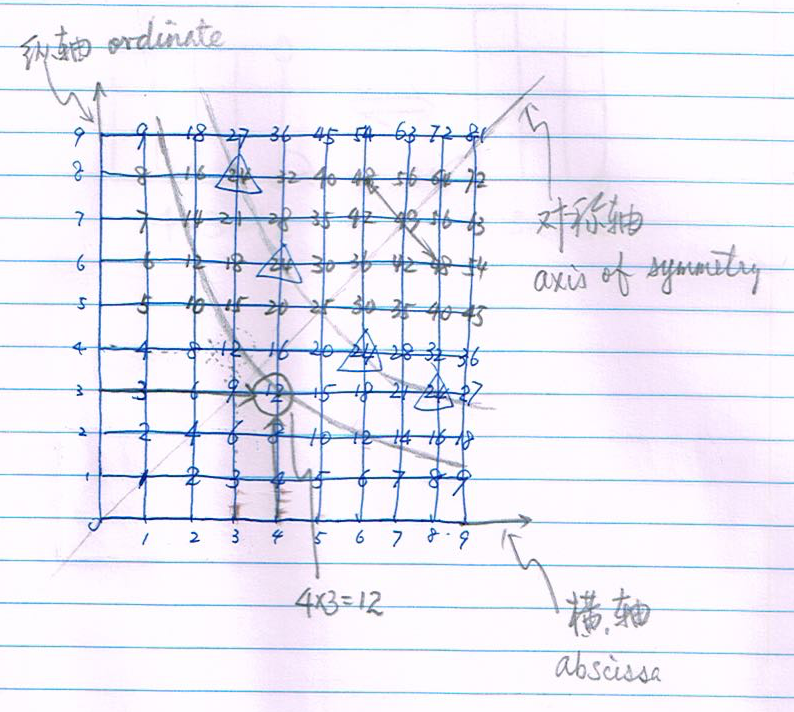 纵轴 ordinate
9 9 18 27 36 45 54 63 72 81
8 8 16 24 32 40 48 56 64 72
7 7 14 21 28 35 42 49 56 63
6 6 12 18 24 30 36 42 48 54
5 5 10 15 20 25 30 35 40 45
4 4 8 12 16 20 24 28 32 36
3 3 6 9 12 15 18 21 24 27
2 2 4 6 8 10 12 14 16 18
1 1 2 3 4 5 6 7 8 9
0
1 2 3 4 5 6 7 8 9
对称轴
axis of symmetry
4×3=12
横轴
abscissa